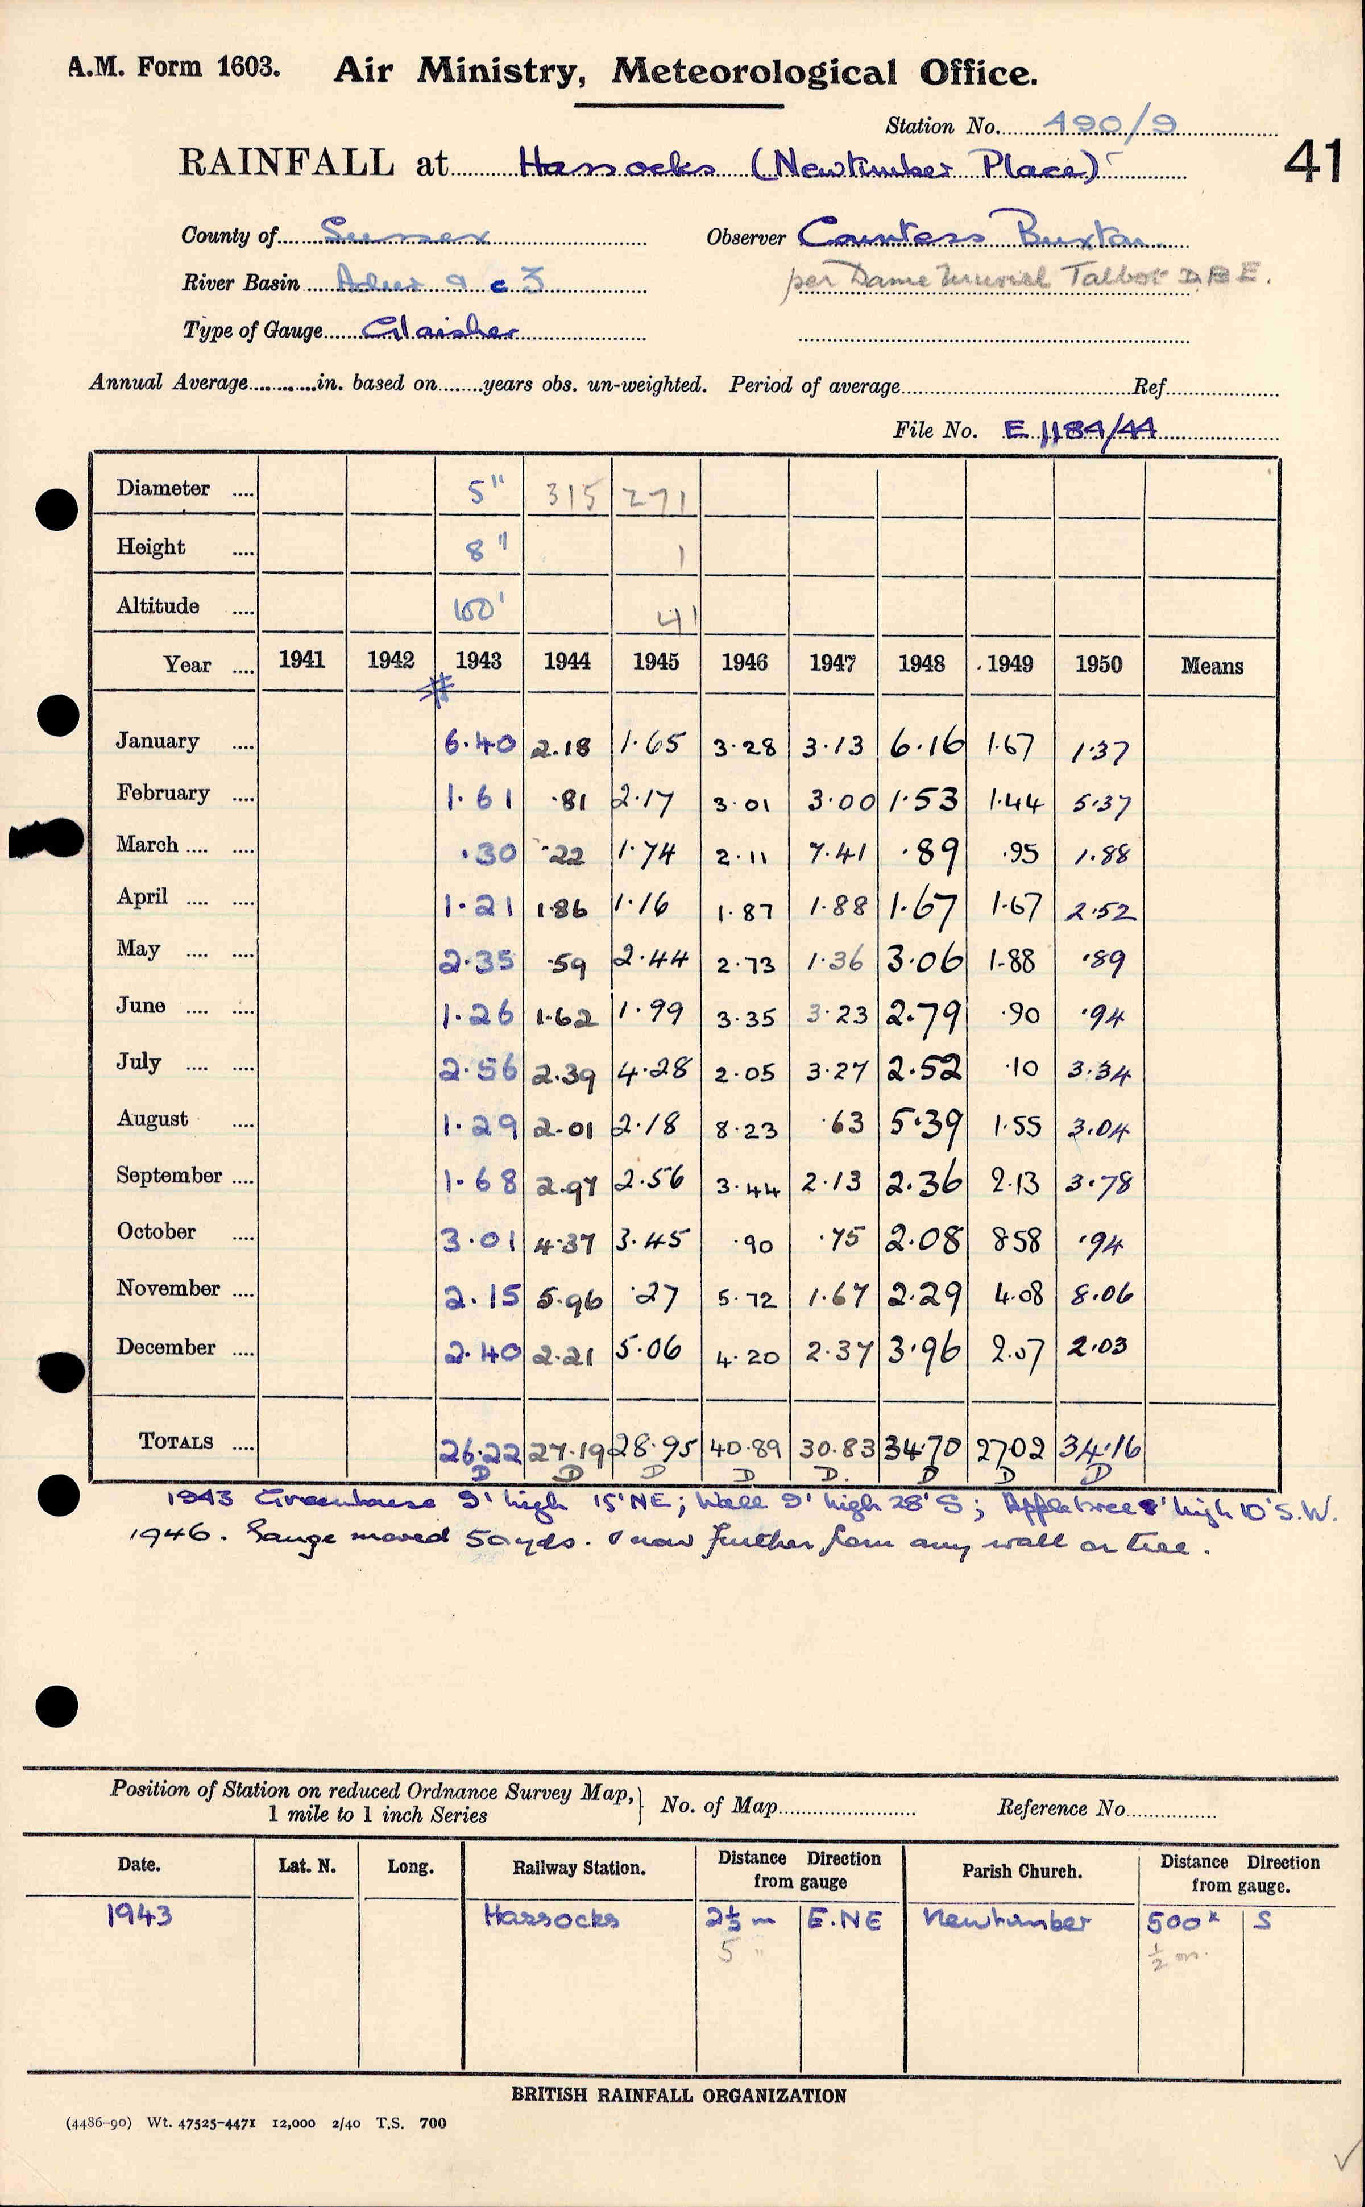 A.M. Form 1603. Air Ministry, Meteorological Office.
Station No. 490/9
41
RAINFALL at Hassocks (Newtimber Place)
County of Sussex Observer Countess Buxton
River Basin Adur 9 c 3 per Dame Muriel Talbot D.B.E.
Type of Gauge Glaisher
Annual Average in. based on years obs. un-weighted. Period of average Ref
File No. E 1184/44
Diameter 5" 315 271
Height 8" 1
Altitude 100' 41
Year 1941 1942 1943 1944 1945 1946 1947 1948 1949 1950 Means
January 6.40 2.18 1.65 3.28 3.13 6.16 1.67 1.37
February 1.61 .81 2.17 3.01 3.00 1.53 1.44 5.37
March .30 .22 1.74 2.11 7.41 .89 .95 1.88
April 1.21 1.86 1.16 1.87 1.88 1.67 1.67 2.52
May 2.35 .59 2.44 2.73 1.36 3.06 1.88 .89
June 1.26 1.62 1.99 3.35 3.23 2.79 .90 .94
July 2.56 2.39 4.28 2.05 3.27 2.52 .10 3.34
August 1.29 2.01 2.18 8.23 .63 5.39 1.55 3.04
September 1.68 2.97 2.56 3.44 2.13 2.36 2.13 3.78
October 3.01 4.37 3.45 .90 .75 2.08 8.58 .94
November 2.15 5.96 .27 5.72 1.67 2.29 4.08 8.06
December 2.40 2.21 5.06 4.20 2.37 3.96 2.07 2.03
TOTALS 26.22 27.19 28.95 40.89 30.83 34.70 27.02 34.16
D D D D D. D D D
1943 Greenhouse 9' high 15' NE; Wall 9' high 28' S; Appletree 8' high 10' S.W.
1946. Gauge moved 50 yds. & now further from any wall or tree.
Position of Station on reduced Ordnance Survey Map, 1 mile to 1 inch Series No. of Map Reference No
Date. Lat. N. Long. Railway Station. Distance Direction from gauge Parish Church. Distance Direction from gauge.
1943 Hassocks 2⅓ m E.NE Newtimber 500 x S
5 " ½ m.
BRITISH RAINFALL ORGANIZATION
(4486-90) Wt. 47525-4471 12,000 2/40 T.S. 700